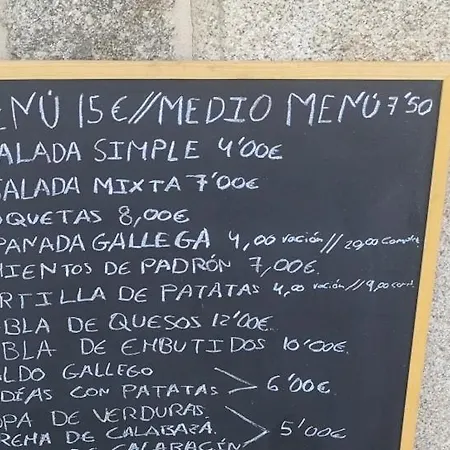 ENÚ 15€//MEDIO MENÚ 7'50
ALADA SIMPLE 4'00€
ALADA MIXTA 7'00€
OQUETAS 8,00€
PANADA GALLEGA 4,00 ración // 20,00 Completa
MIENTOS DE PADRÓN 7,00€.
RTILLA DE PATATAS 4,00 ración // 9,00 cont.
BLA DE QUESOS 12'00€.
BLA DE EMBUTIDOS 10'00€.
ALDO GALLEGO
DÉAS CON PATATAS > 6'00€
OPA DE VERDURAS.
REMA DE CALABAZA. > 5'00€
DE CALABACÍN